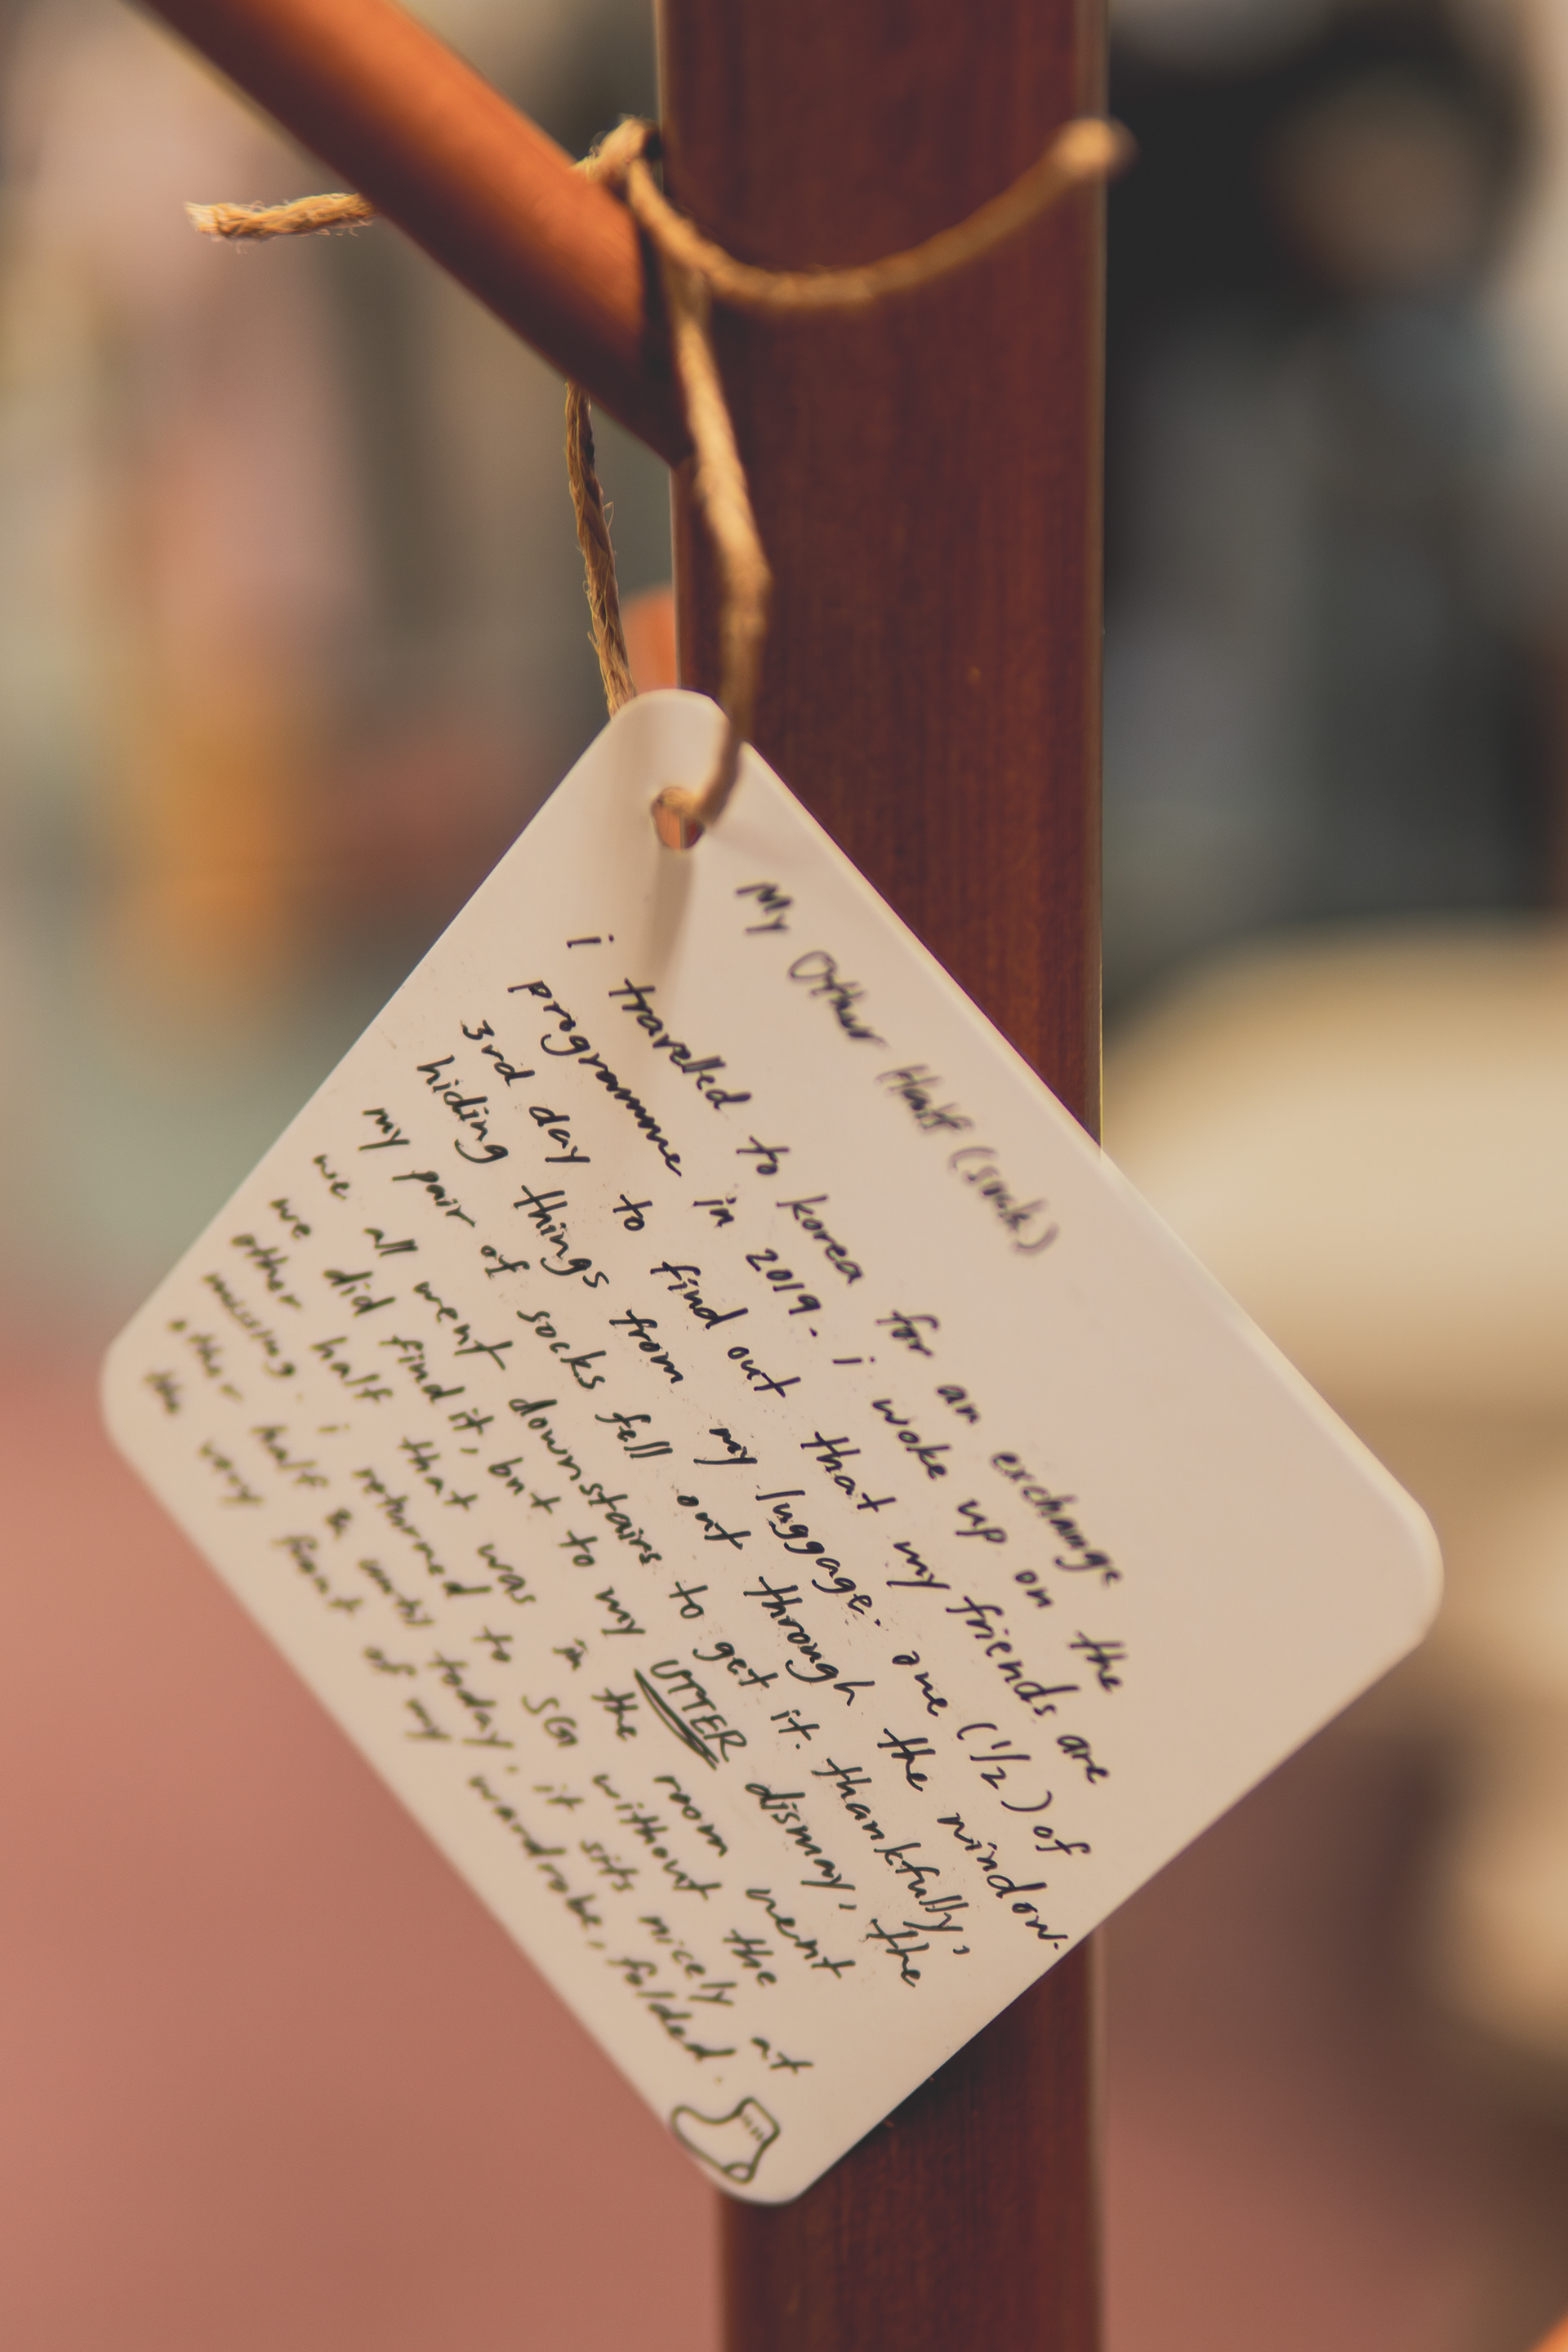 My Other Half (Sock)
i travelled to korea for an exchange
programme in 2019. i woke up on the
3rd day to find out that my friends are
hiding things from my luggage: one (1/2) of
my pair of socks fell out through the window.
we all went downstairs to get it. thankfully,
we did find it, but to my UTTER dismay, the
other half that was in the room went
missing. i returned to SG without the
other half & until today, it sits nicely at
the very front of my wardrobe, folded.